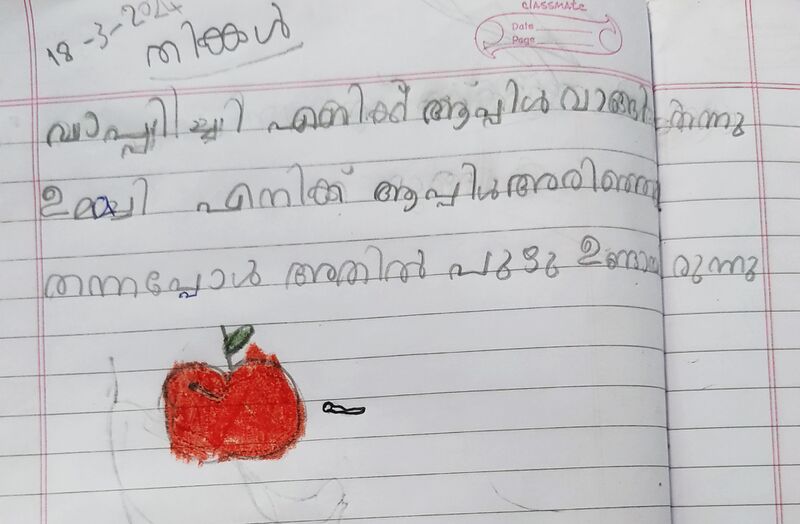 classmate
Date
Page
18-3-2024
തിങ്കൾ
വാപ്പിച്ചി എനിക്ക് ആപ്പിൾ വാങ്ങി തന്നു
ഉമ്മച്ചി എനിക്ക് ആപ്പിൾ അരിഞ്ഞു
തന്നപ്പോൾ അതിൽ പുഴു ഉണ്ടായിരുന്നു